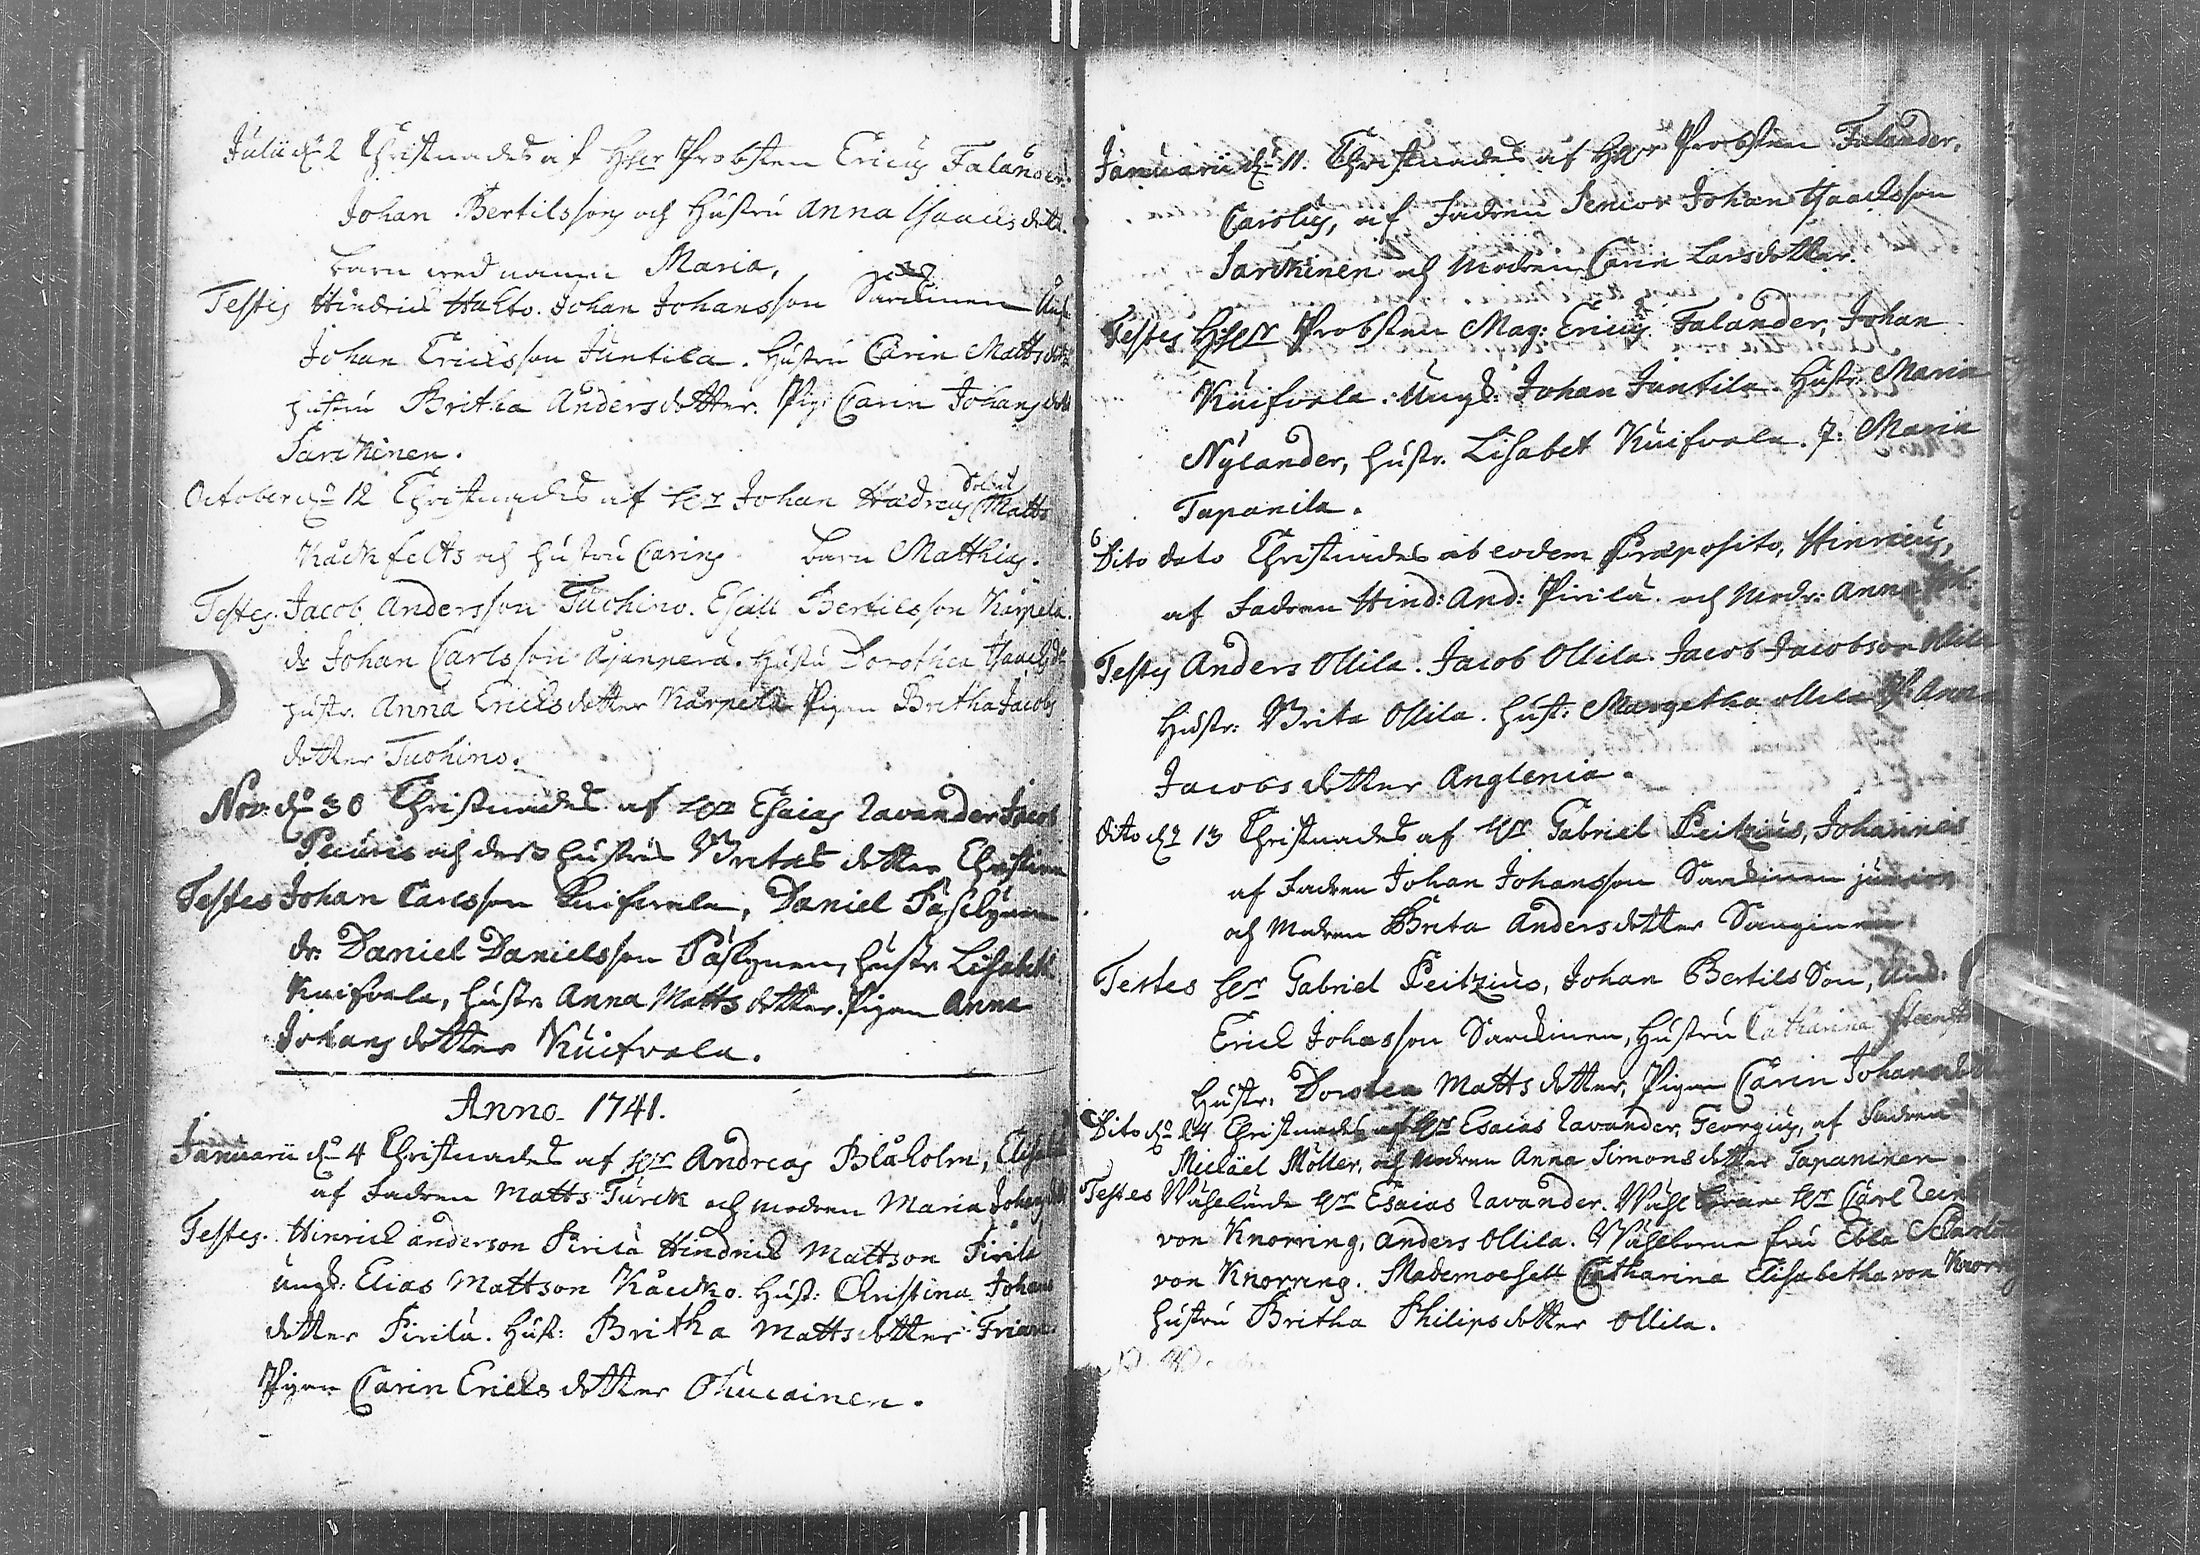 Julii d. 2 Christnades af Hher Probsten Ericus Falander
Johan Bertilssons och Hustru Anna Isaacs dott.
barn wed namn Maria,
Testes Hindric Halto. Johan Johansson Sarckinen
Johan Ericsson Juntila. Hustru Carin Matts dott.
hustru Britha Anders dotter. Pig: Carin Johans dott
Sarckinen.
October d. 12 Christnades af Hr Johan Hadreus Matts
Kåckfelts och hustru Carins barn Matthias.
Testes. Jacob Andersson Tuohino. Esaill Bertilsson Karpela.
dr Johan Carlsson Ajanpera. Hustru Dorothea Isaacs dr
hustr. Anna Erichs dotter Karpela Pigan Britha Jacobs
dotter Tuohino.
Nov: d. 30 Christnades af Hr Esaias Lavander Jacob
och dess hustrus Britas dotter Christina
Testes Johan Carlsson Kuifvala, Daniel Päsckynen
dr. Daniel Danielsson Päskynen, hustr Lisabeth
Kuifvala, hustr Anna Matts dotter. Pigan Anna
Johans dotter Kuifvala.
Anno. 1741.
Januarii d. 4 Christnades af Hr Andreas Blåholm,
af Fadren Matts Turck och modren Maria
Testes. Hinrich anderson Pirilä Hindrich Mattson Pirilä
ungk: Elias Mattson Kåcko. Hust: Christina Johans
dotter Pirilä. Hust: Britha Matts dotter
Pigan Carin Erichs dotter Ohucainen.
Januarii d. 11. Christnades af Hher Probsten Falander,
Carolus, af Fadren Senior Johan Isaachsson
Sarckinen och Modren Carin Larsdotter.
Testes Hher Probsten Mag: Ericus Falander, Johan
Kuifvala. Ungk: Johan Juntila. Hustr. Maria
Nylander, hustr. Lisabet Kuifvala. P: Maria
Tapanila.
Dito dato Christnades ab eodem Præposito, Hinricus,
af Fadren Hind: And: Pirilä. och Modr: Anna
Testes Anders Ollila. Jacob Ollila. Jacob Jacobson
Hustr: Brita Ollila. hust: Margetha Ollila P: Anna
Jacobs dotter Anglenia.
Dito d. 13 Christnades af Hr Gabriel Peitzius, Johannes
af Fadren Johan Johansson Sarckinen junior
och Modren Brita Anders dotter Sanginen.
Testes Hr Gabriel Peitzius, Johan Bertils Son,
Erich Johasson Sarckinen, Hustru Catharina
Hustr. Dorotea Matts dotter, Pigan Carin
Dito d. 24 Christnades af Hr Esaias Lavander, Georgius, af Fadren
Michäel Möller, och modren Anna Simons dotter Tapaninen
Testes Hr Esaias Lavander. Hr Carl
von Knorring, Anders Ollila. fru Ebba
von Knorring. Mademoisell Catharina Elisabetha von Knorring
hustru Britha Philips dotter Ollila.